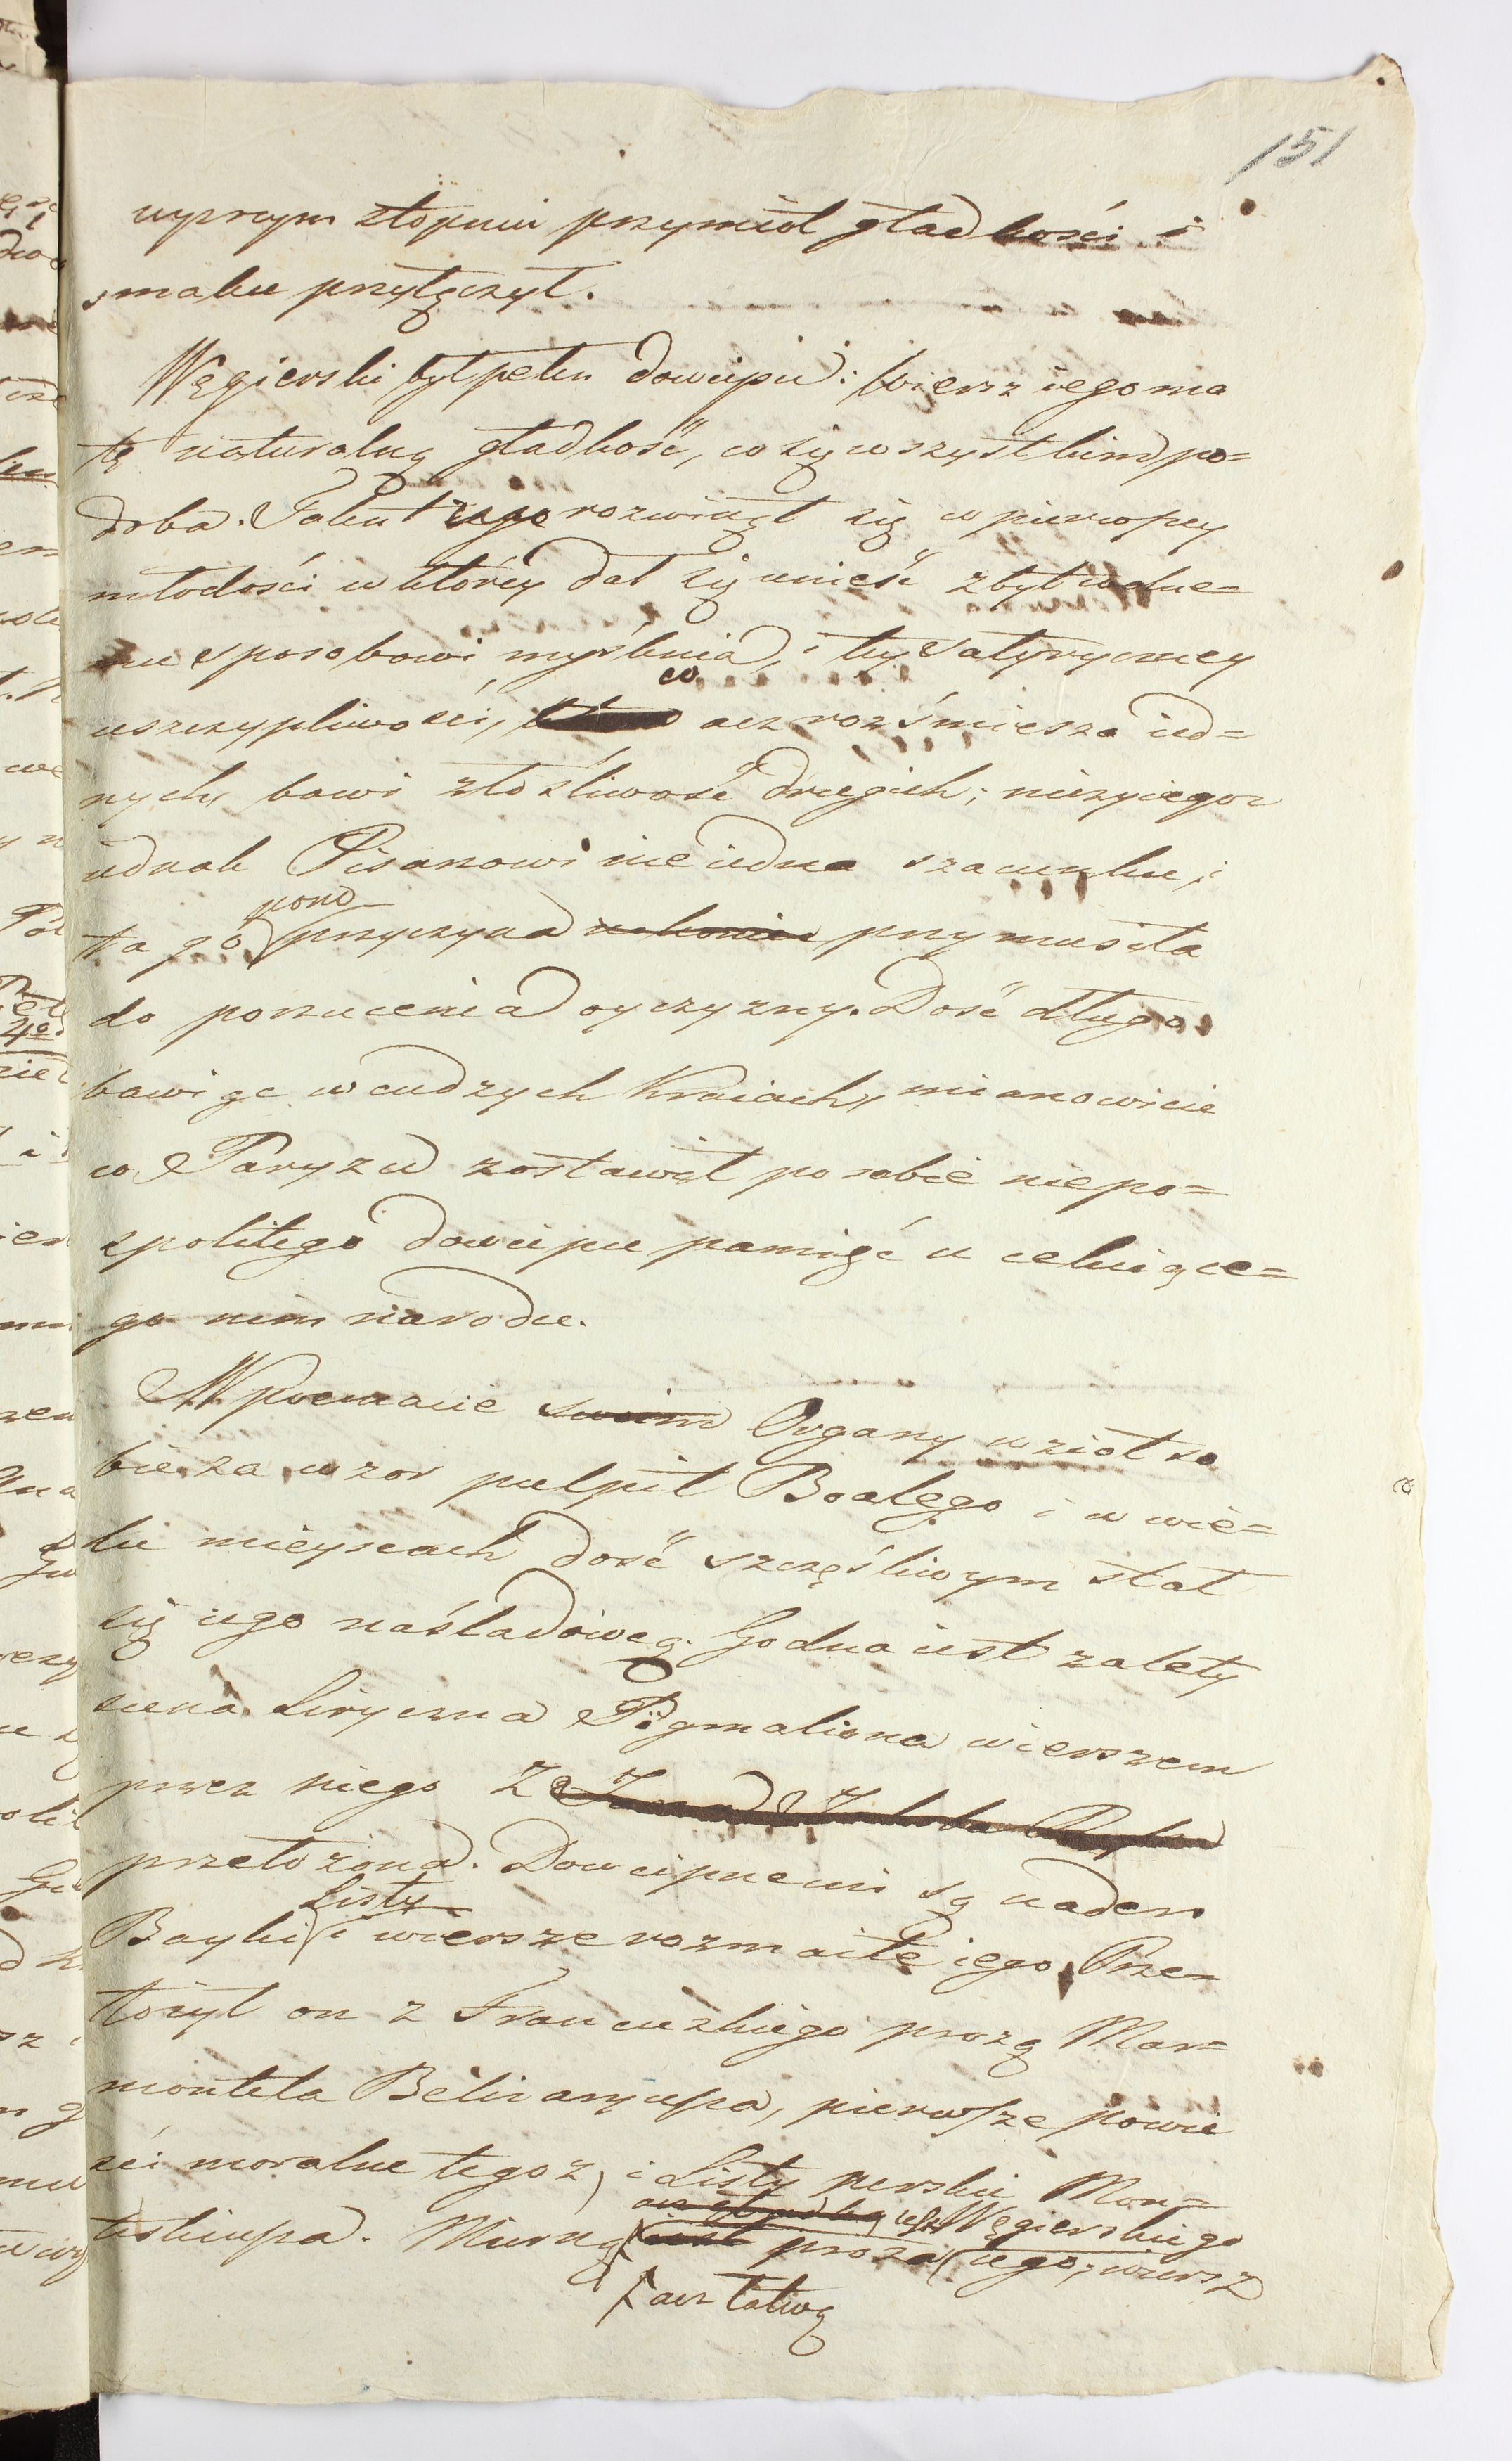 151
wyższym stopniu przymiot gładkości i
smaku przyłączył.
Węgierski był pełen dowcipu: Wiersz iego ma
tę naturalną gładkość, co się wszystkim po=
doba. Talent iego rozwinął się w pierwszey
młodości w którey dał się unieść zbyt wolne=
mu sposobowi myślenia, i tey satyryczney
uszczypliwości, co acz rozśmiesza ied=
nych, bawi złośliwość drugich; niczyiegoż
iednak Pisarzowi nie iedna szacunku, i
ta go pono przyczyna przymusiła
do porzucenia oyczyzny. Dość długo
bawiąc w cudzych Kraiach, mianowicie
w Paryżu zostawił po sobie niepo=
spolitego dowcipu pamięć u celuiące=
go nim narodu.
W poemacie swoim Organy wziął so
bie za wzor pulpit Boalego i w wie=
lu mieyscach dość szczęśliwym stał
się iego naśladowcą. Godna iest zalety
scena Liryczna Pigmaliona wierszem
przez niego z
przełożona. Dowcipnemi są nader
Bayki Listy i wiersze rozmaite iego. Prze=
łożył on z Francuzkiego prozą Mar=
montela Belizaryusza, pierwsze powie
ści moralne tegoż, i Listy perskie Mon=
teskiusza. Węgierskiego
proza iego, wiersz
acz łatwą